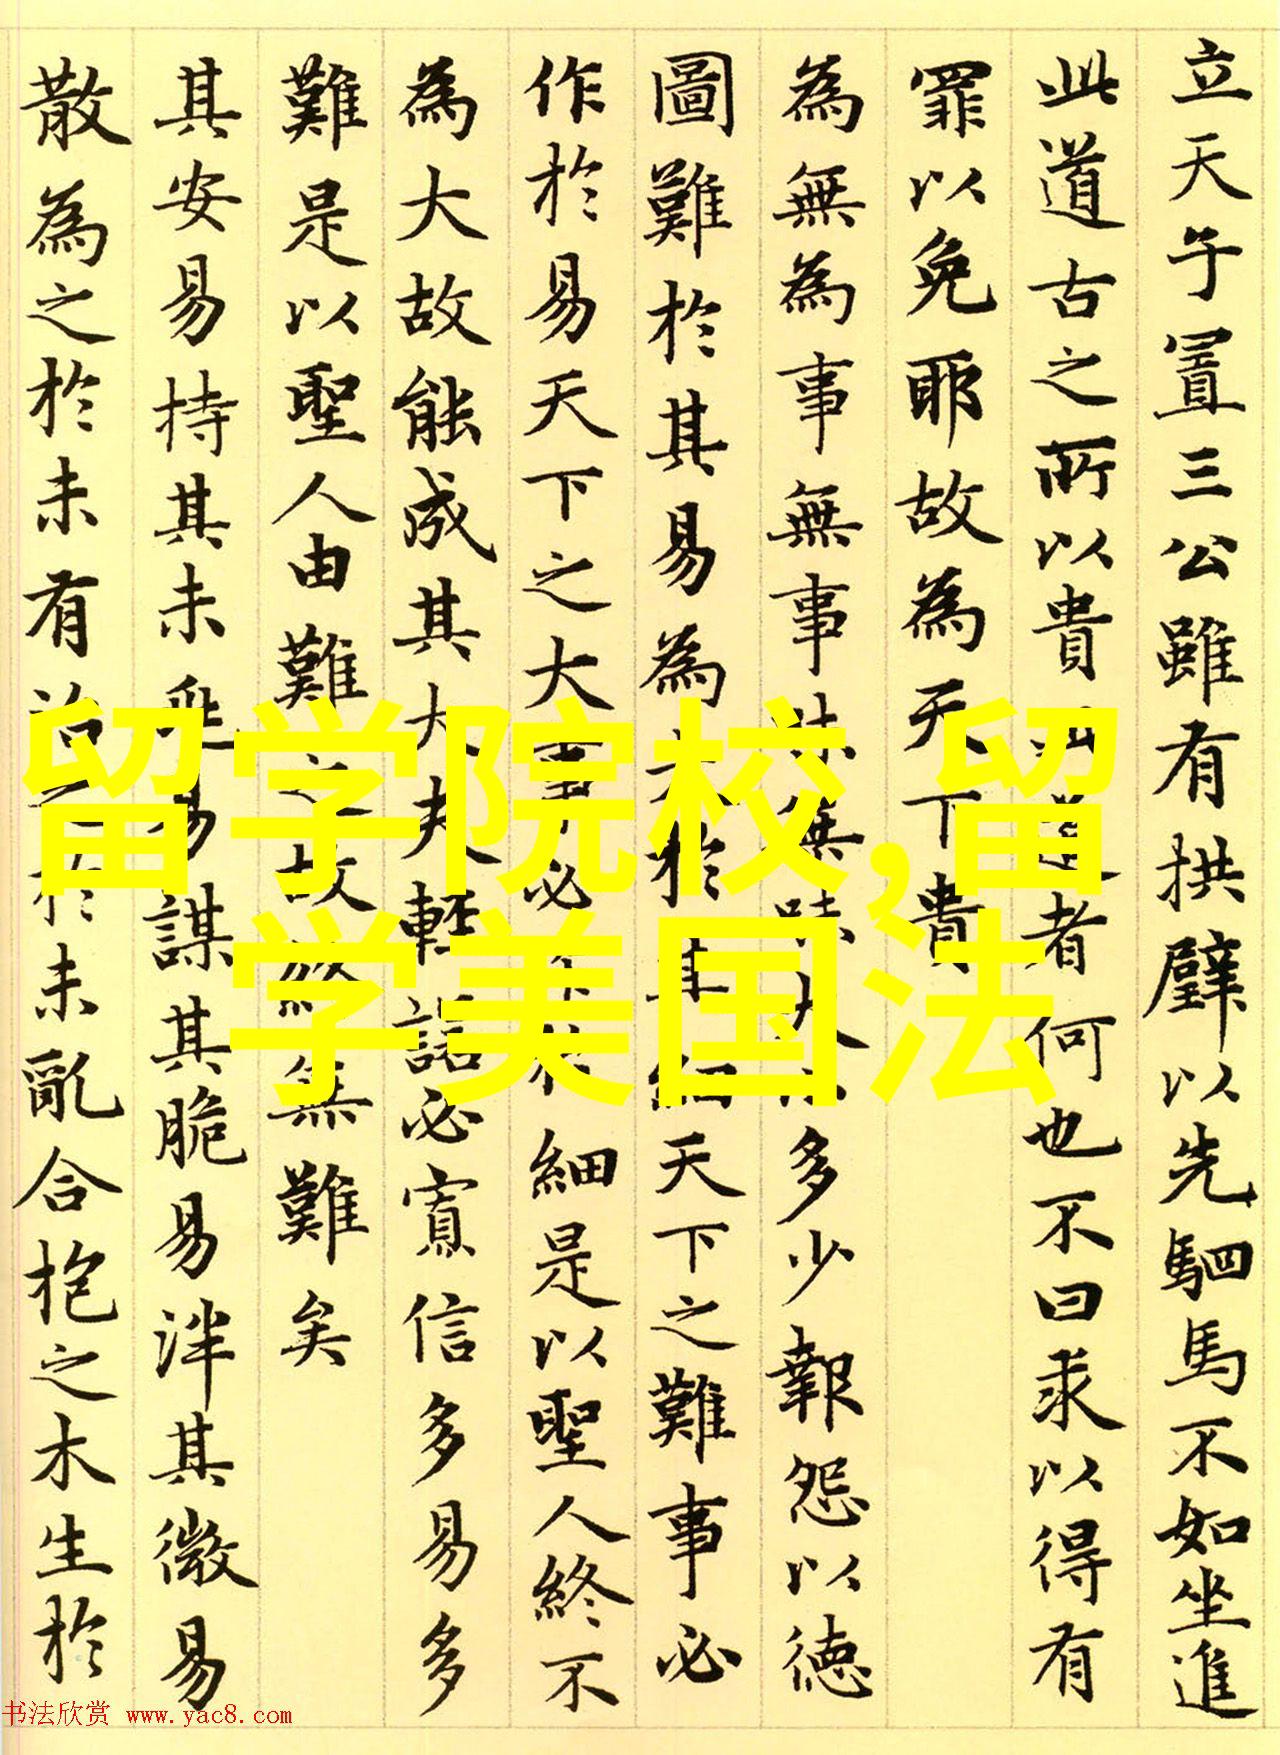 立天子置三公雖有拱璧以先駟馬不如坐進
此道古之所以貴此道者何也不曰求以得有
罪以免耶故為天下貴
為無為事無事味無味大小多少報怨以德
圖難於其易為大於其細天下之難事必
作於易天下之大事必作於細是以聖人終不
為大故能成其大夫輕諾必寡信多易多
難是以聖人由難之故終無難矣
其安易持其未兆易謀其脆易泮其微易
散為之於未有治之於未亂合抱之木生於
留学院校,留
学美国法
书法欣赏 www.yac8.com